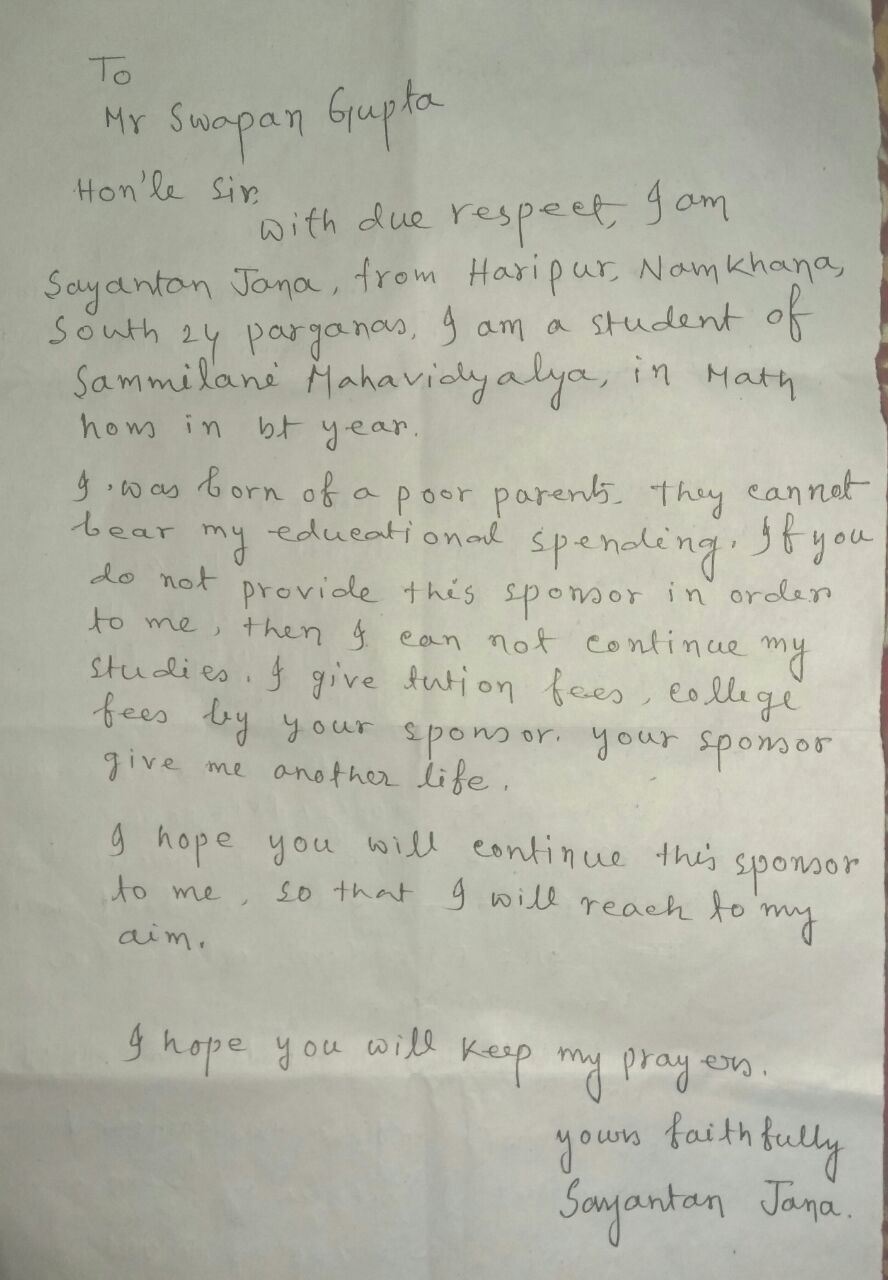 To
Mr Swapan Gupta
Hon'le Sir,
With due respect, I am
Sayantan Jana, from Haripur, Namkhana,
South 24 parganas, I am a student of
Sammilani Mahavidyalya, in Math
hons in 1st year.
I was born of a poor parents. They cannot
bear my educational spending. If you
do not provide this sponsor in order
to me, then I can not continue my
studies. I give tution fees, college
fees by your sponsor. your sponsor
give me another life.
I hope you will continue this sponsor
to me, so that I will reach to my
aim.
I hope you will keep my prayers.
yours faithfully
Sayantan Jana.